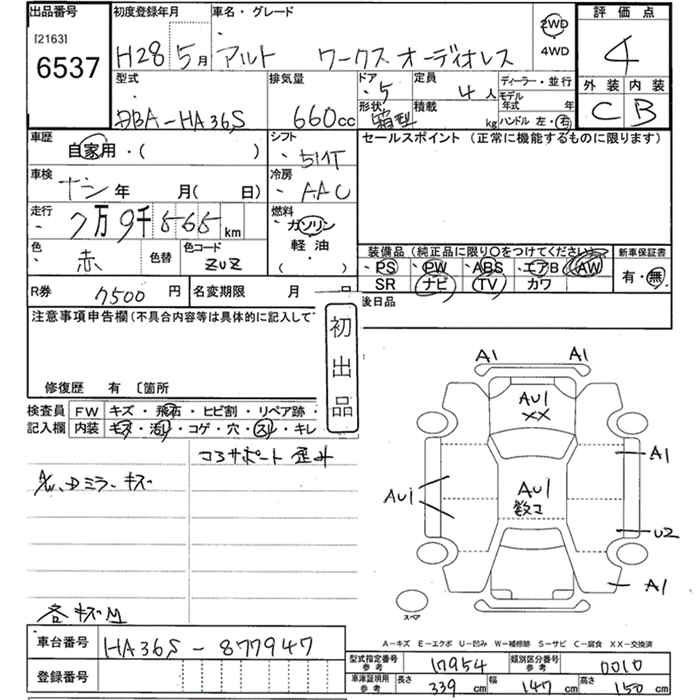 出品番号 初度登録年月 車名・グレード 評価点
[2163] 6537 H28 5月 アルト ワークス オーディオレス 2WD 4WD 4
型式 排気量 ドア 定員 ディーラー・並行 外装 内装
DBA-HA36S 660cc 5 4人 モデル年式 年 C B
形状 箱型 積載 kg ハンドル 左・右
車歴 シフト セールスポイント (正常に機能するものに限ります)
自家用・( ) 5MT
車検 ナシ 年 月( 日) 冷房 AAC
走行 7万9千565km 燃料 ガソリン
色 赤 色替 色コード ZUZ 軽油 ( )
装備品 (純正品に限り○をつけてください) 新車保証書
PS PW ABS エアB AW 有・無
SR ナビ TV カワ
R券 7500円 名変期限 月 日 後日品
注意事項申告欄(不具合内容等は具体的に記入して
初出品
修復歴 有 〔箇所
検査員 FW キズ・飛石・ヒビ割・リペア跡・
記入欄 内装 キズ・汚れ・コゲ・穴・スレ・キレ
コアサポート 歪み
AW、Dミラーキズ
各キズM
A1 A1
AU1
XX
A1
AU1
AU1
数コ
U2
A1
スペア
A-キズ E-エクボ U-凹み W-補修跡 S-サビ C-腐食 XX-交換済
車台番号 HA36S-877947
登録番号
型式指定番号 参考 17954 類別区分番号 参考 0010
車庫証明用 参考 長さ 339cm 幅 147cm 高さ 150cm